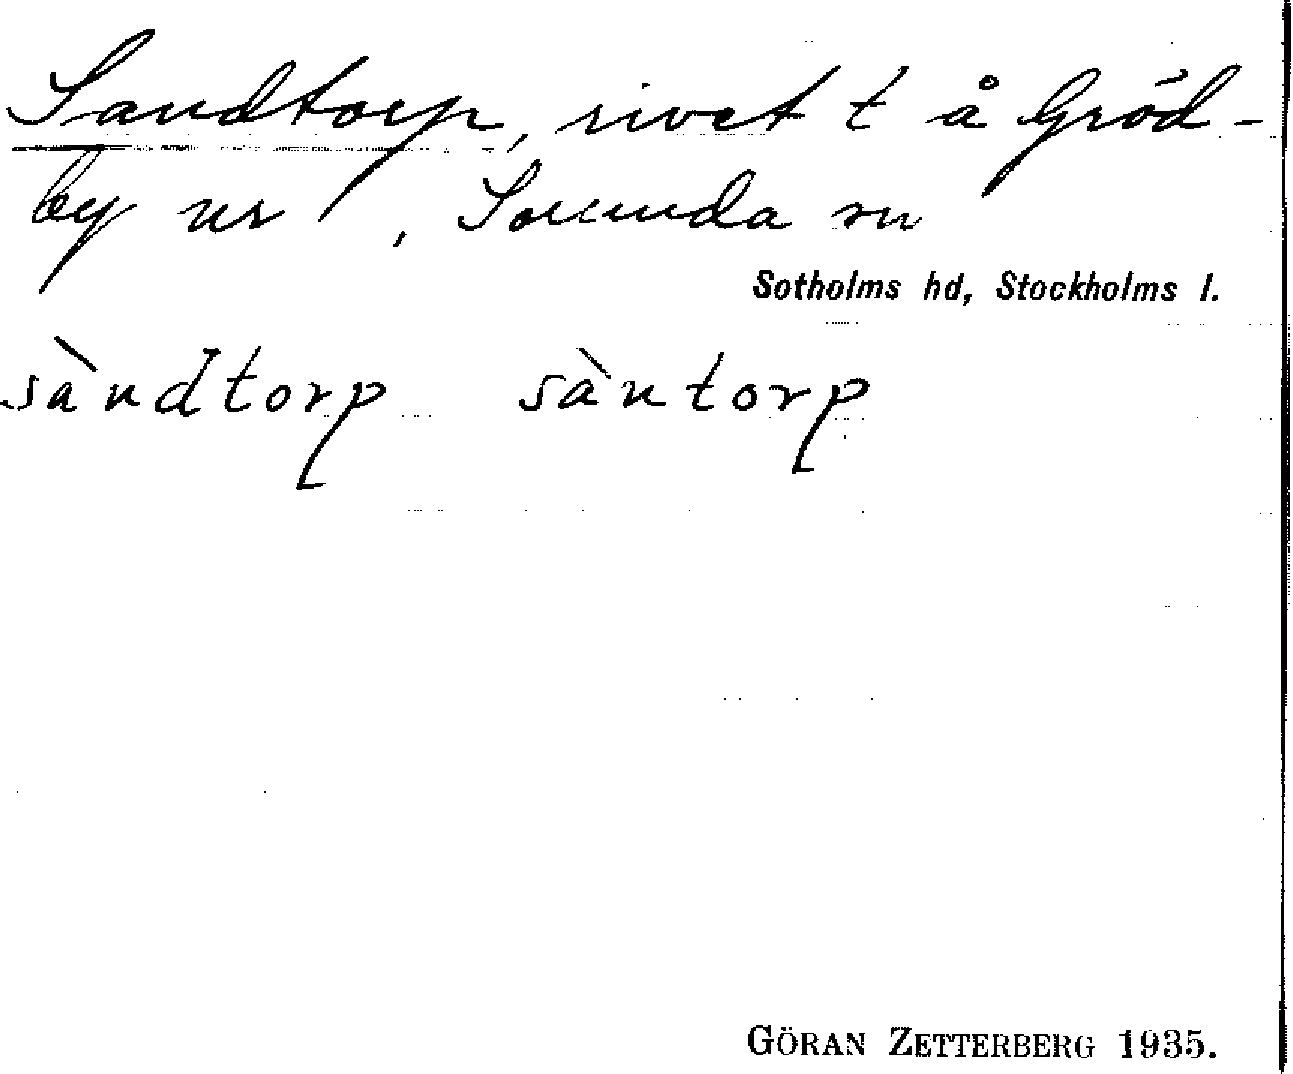 Sandtorp, rivet t å Gröd-
by nr , Sorunda sn
Sotholms hd, Stockholms l.
sàndtorp sàntorp
GÖRAN ZETTERBERG 1935.